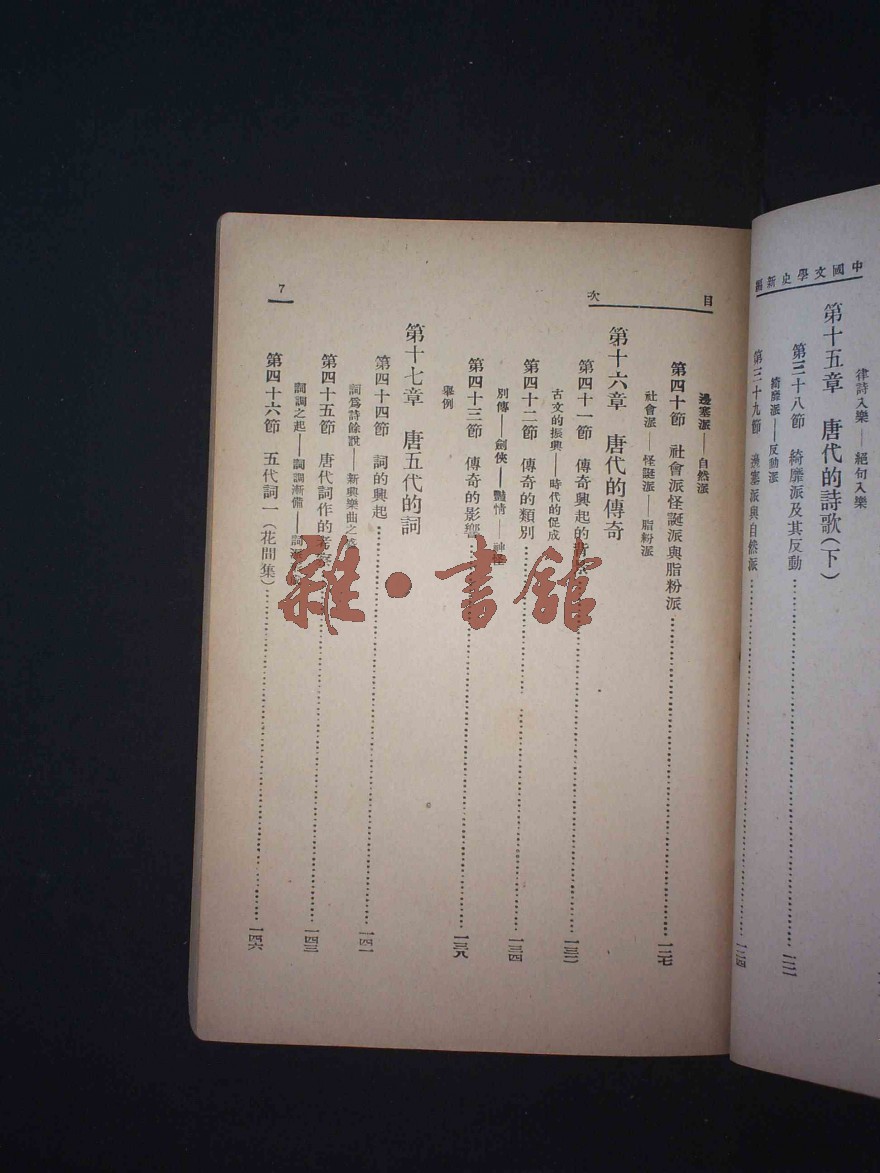 中國文學史新編
律詩入樂——絕句入樂
第十五章　唐代的詩歌（下）
第三十八節　綺靡派及其反動……一二一
綺靡派——反動派
第三十九節　邊塞派與自然派……一二四
目次
7
邊塞派——自然派
第四十節　社會派怪誕派與脂粉派……一二七
社會派——怪誕派——脂粉派
第十六章　唐代的傳奇
第四十一節　傳奇興起的……一三二
古文的振興——時代的促成
第四十二節　傳奇的類別……一三四
別傳——劍俠——豔情——神怪
第四十三節　傳奇的影響……一三八
舉例
第十七章　唐五代的詞
第四十四節　詞的興起……一四一
詞爲詩餘說——新興樂曲之
第四十五節　唐代詞作的考察……一四三
詞調之起——詞調漸備——詞
第四十六節　五代詞一（花間集）……一四六
雜·書館